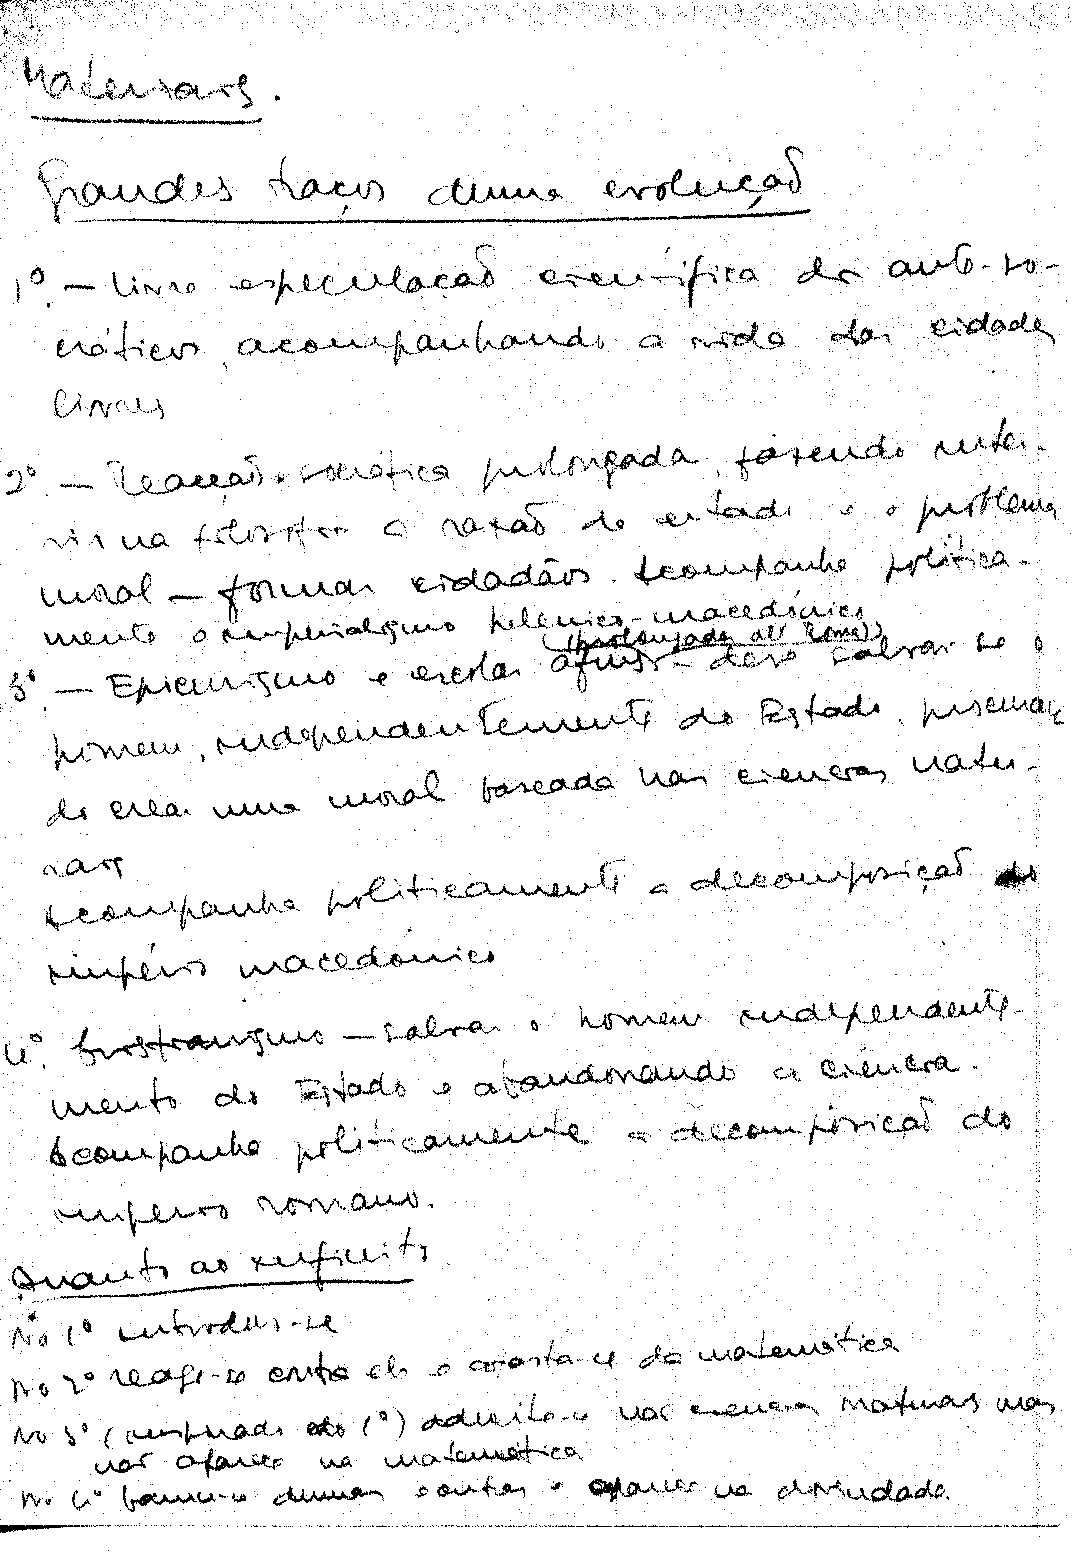 Materiais.
Grandes traços duma evolução
1º. — livre especulação científica dos anti-so-
cráticos, acompanhando a vida das cidades
livres
2º. — Reacção socrática prolongada, fazendo inter-
vir na filosofia a razão de estado e o problema
moral — formar cidadãos. Acompanha politica-
mente o imperialismo helenico-macedónico
(prolongada até Roma)
3º. — Epicurismo e escolas afins — deve salvar-se o
homem, independentemente do Estado, procuran-
do criar uma moral baseada nas ciencias natu-
rais
Acompanha politicamente a decomposição do
império macedónico
4º. Cristianismo — salvar o homem independente-
mente do Estado e abandonando a ciência.
Acompanha politicamente a decomposição do
imperio romano.
Quanto ao infinito
No 1º introduz-se
No 2º reage-se contra ele e afasta-se da matemática
No 3º (inspirado do 1º) admite-se nas ciencias naturais mas
não aparece na matemática
No 4º bane-se dumas e outras e aparece na divindade